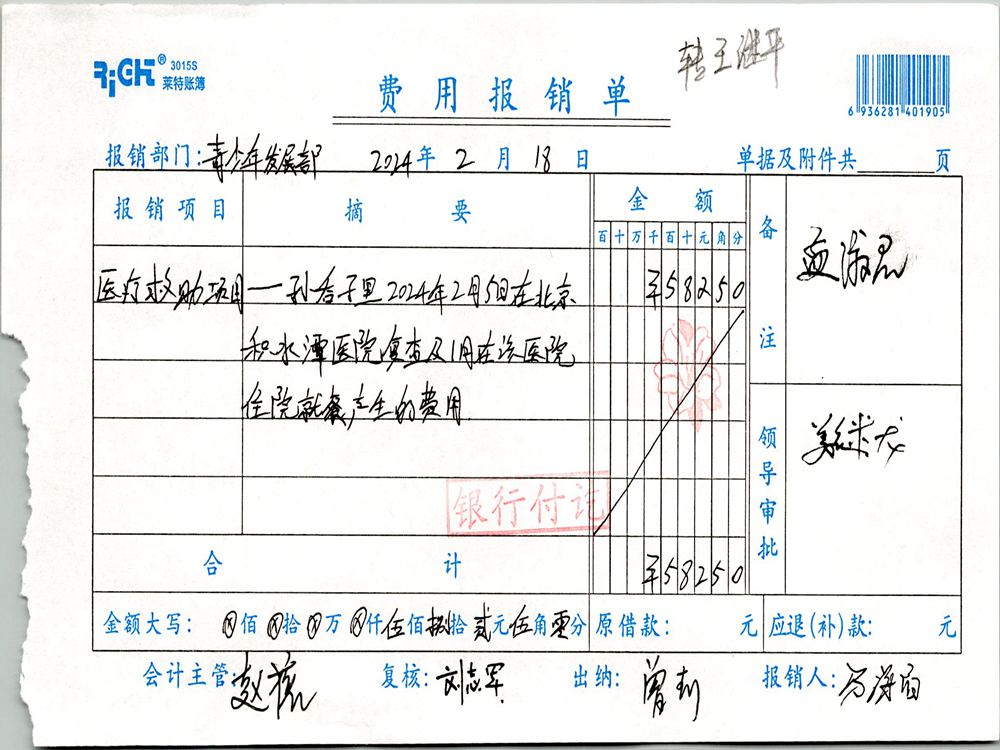 转王继平
RiGHT® 3015S
莱特账簿
费用报销单
6 936281 401905
报销部门:青少年发展部 2024年2月18日 单据及附件共 页
报销项目 摘要 金额 备注
百十万千百十元角分
医疗救助项目 一孙香子里2024年2月5日在北京 ¥58250
积水潭医院复查及1月在该医院
住院就餐产生的费用
领导审批
银行付讫
合计 ¥58250
金额大写: ⊗佰⊗拾⊗万⊗仟伍佰捌拾贰元伍角零分 原借款: 元 应退(补)款: 元
会计主管: 赵 复核: 刘志军 出纳: 曾莉 报销人: 冯海